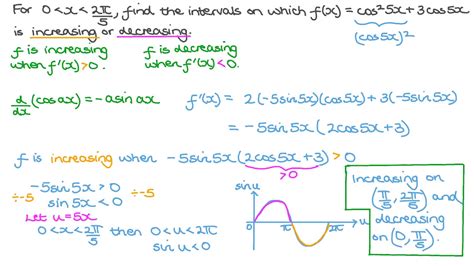 For 0 < x < 2π/5, find the intervals on which f(x) = cos²5x + 3cos5x
is increasing or decreasing.
(cos5x)²
f is increasing
when f'(x) > 0.
f is decreasing
when f'(x) < 0.
d/dx (cos ax) = -a sin ax
f'(x) = 2(-5sin5x)(cos5x) + 3(-5sin5x)
= -5sin5x(2cos5x + 3)
f is increasing when -5sin5x(2cos5x + 3) > 0
> 0
÷-5 -5sin5x > 0 ÷-5
sin5x < 0
Let u = 5x
0 < x < 2π/5 then 0 < u < 2π
sin u < 0
sin u
0 π 2π u
Increasing on
(π/5, 2π/5) and
decreasing
on (0, π/5).